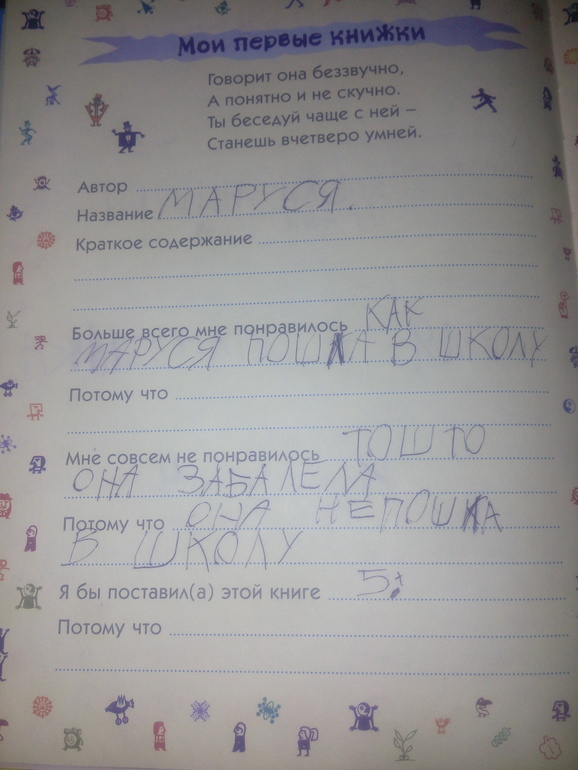 Мои первые книжки
Говорит она беззвучно,
А понятно и не скучно.
Ты беседуй чаще с ней –
Станешь вчетверо умней.
Автор
Название МАРУСЯ.
Краткое содержание
Больше всего мне понравилось КАК
МАРУСЯ ПОШЛА В ШКОЛУ
Потому что
Мне совсем не понравилось ТОШТО
ОНА ЗАБАЛЕЛА
Потому что ОНА НЕПОШЛА
В ШКОЛУ
Я бы поставил(а) этой книге 5+
Потому что